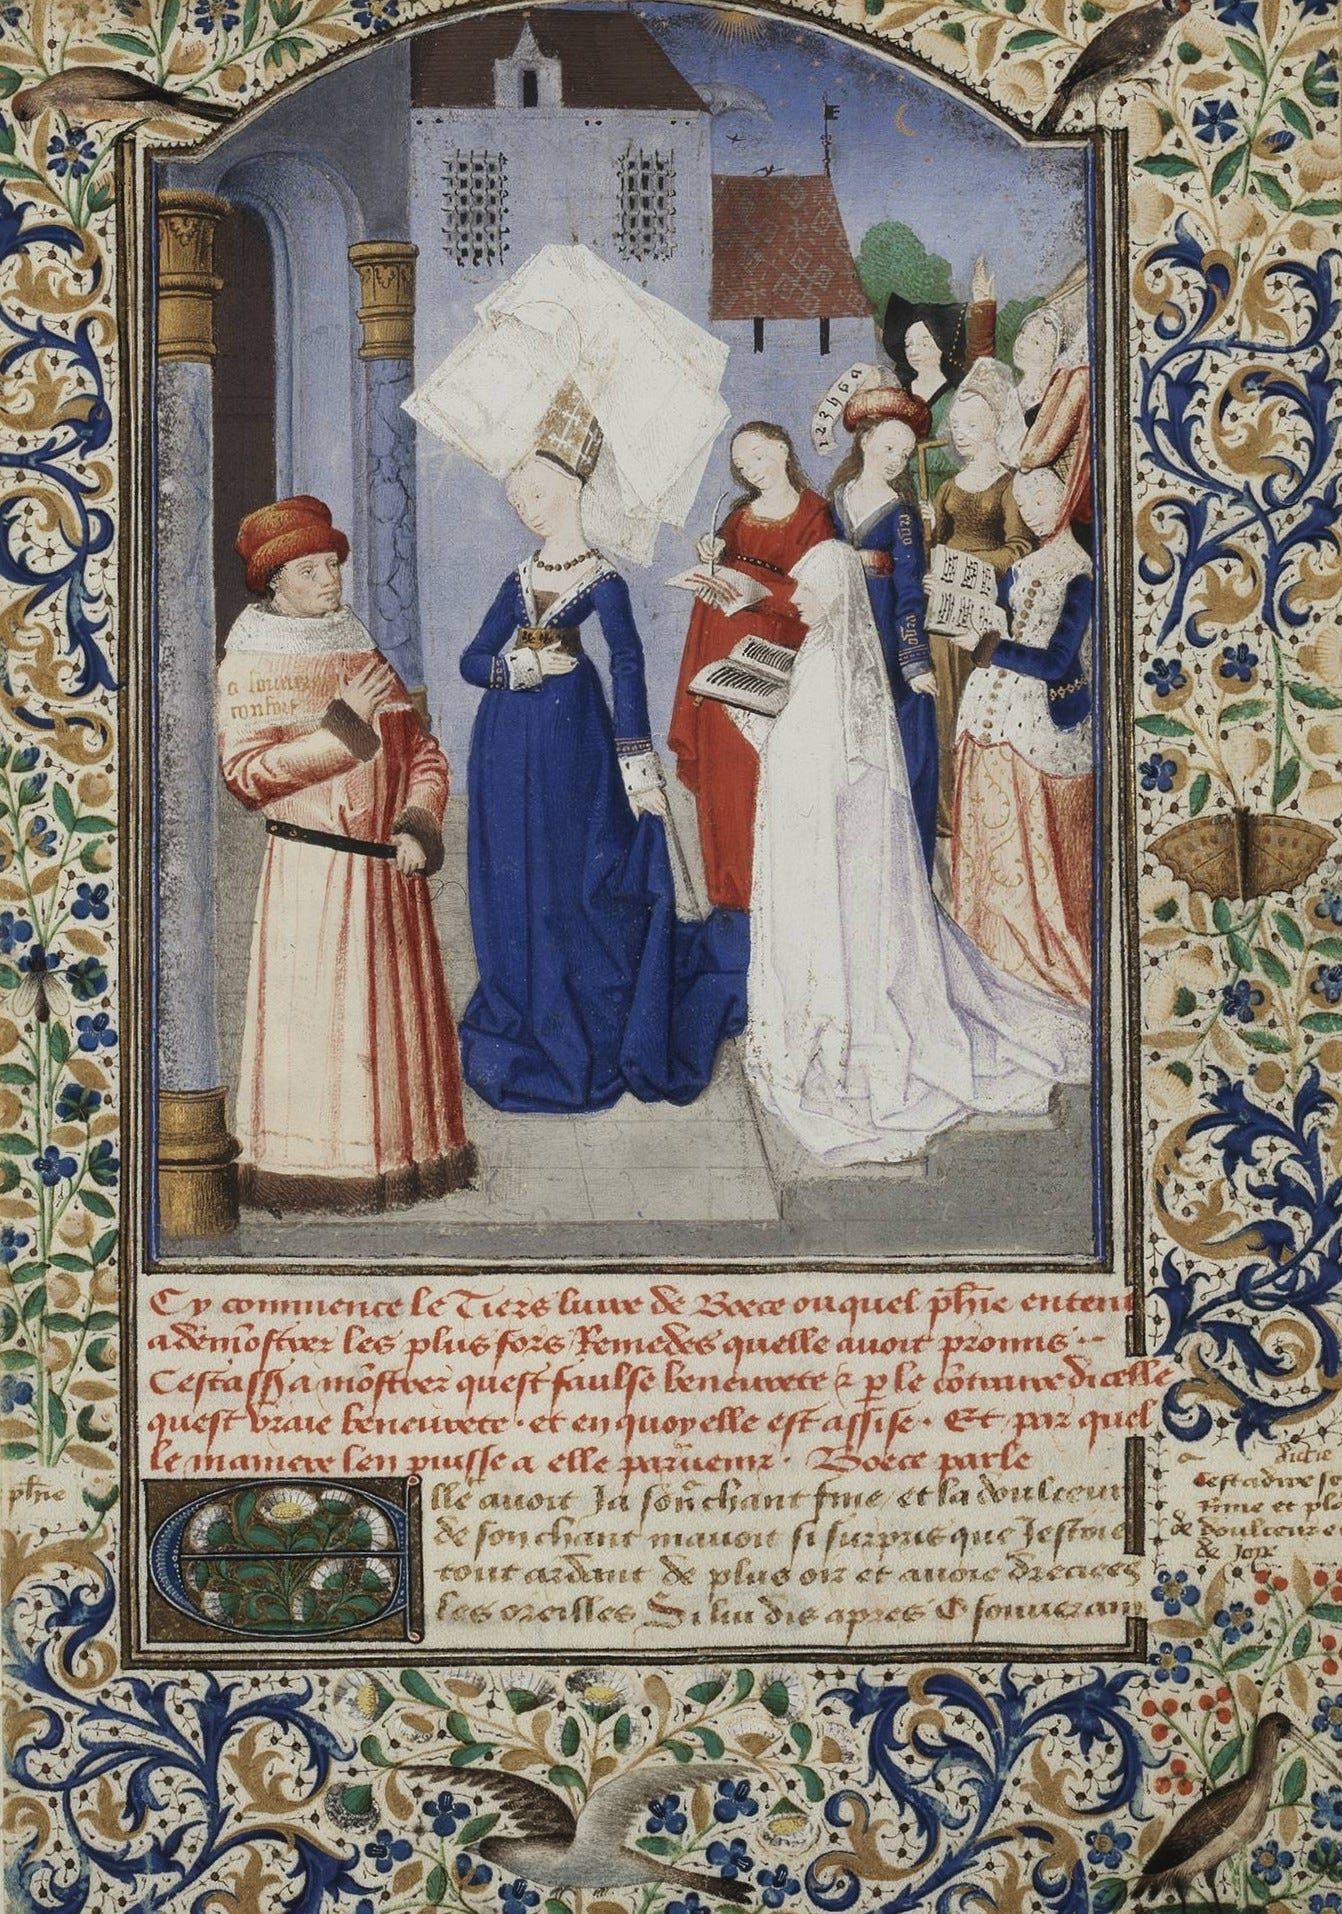 1234
a souuerain
confort
Cy commence le Tiers liure de Boece ouquel phie entent
a demostrer les plus fors Remedes quelle auoit promis
Cestassr a mostrer quest faulse beneurete & p le cotraire dicelle
quest vraie beneurete · et en quoy elle est assise · Et par quel
le maniere len puisse a elle paruenir · Boece parle
phie
Elle auoit Ja son chant fine / et la doulceur
de son chant mauoit si surpris que Jestoie
tout ardant de plus oir et auoie drecies
les oreilles Si lui dis apres O souuerain
a
cest a dire
rime et
de doulceur
de Joie